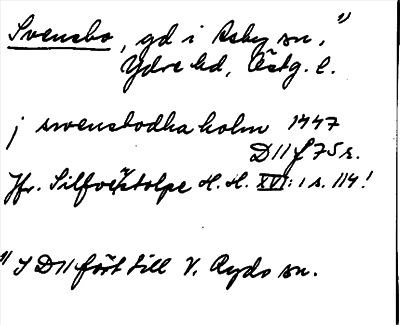 Svensbo, gd i Asby sn, 1)
Ydre hd, Östg. l.
j swensbodha holm 1447
D11 f 75 r.
Jfr. Silfverstolpe H. H. XVI: 1 s. 114!
1) I D11 fört till V. Ryds sn.